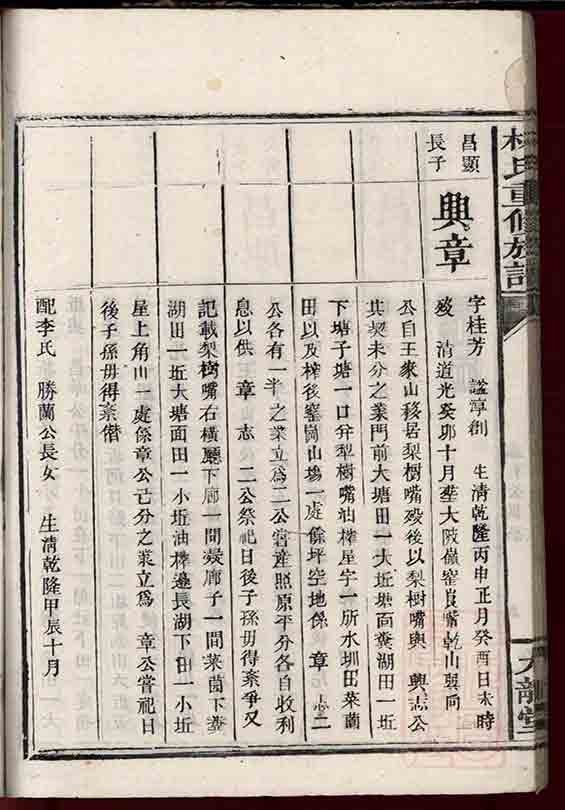 昌顯
長子
興章
字桂芳 諡淳創 生清乾隆丙申正月癸酉日未時
歿 清道光癸卯十月塟大陂嶺窑㟁嘴乾山巽向
公自王家山移居梨樹嘴歿後以梨樹嘴與 興志公
共契未分之業門前大塘田一大坵塘面糞湖田一坵
下塘子塘一口弁梨樹嘴油榨屋宇一所水圳田菜薗
田以及榨後窑崗山塲一處餘坪空地係 章 志二
公各有一半之業立為二公甞産照原平分各自收利
息以供 章 志二公祭祀日後子孫毋得紊爭又
記載梨樹嘴右橫廳下廊一間 廊子一間菜薗下糞
湖田一坵大塘面田一小坵油榨邊長湖下田一小坵
屋上角山一處係章公己分之業立為 章公甞祀日
後子孫毋得紊僭
配李氏 勝蘭公長女 生清乾隆甲辰十月
氏重修族譜
堂